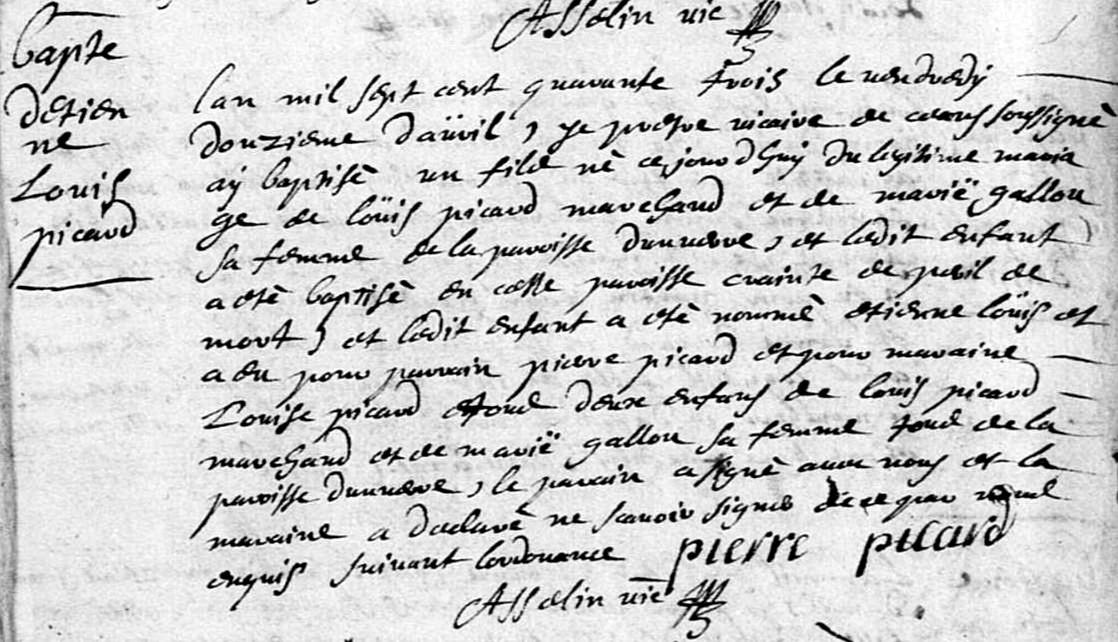 Asselin vic
bapte
detien
ne
Louis
picard
lan mil sept cent quarante trois le vendredy
douzieme dauril, je pretre vicaire de ceans soussigné
ay baptisé un fils né ce jourdhuy du legitime maria
ge de loüis picard marchand et de marië gallou
sa femme de la paroisse dunverre, et ledit enfant
a eté baptisé en cette paroisse crainte de peril de
mort, et ledit enfant a eté nommé etienne loüis et
a eu pour parrain pierre picard et pour maraine
Louise picard tous deux enfans de louis picard
marchand et de marië gallou sa femme tous de la
paroisse dunverre, le parain a signé avec nous et la
maraine a declaré ne scavoir signer de ce par nous
enquis suivant lordonance pierre picard
Asselin vic